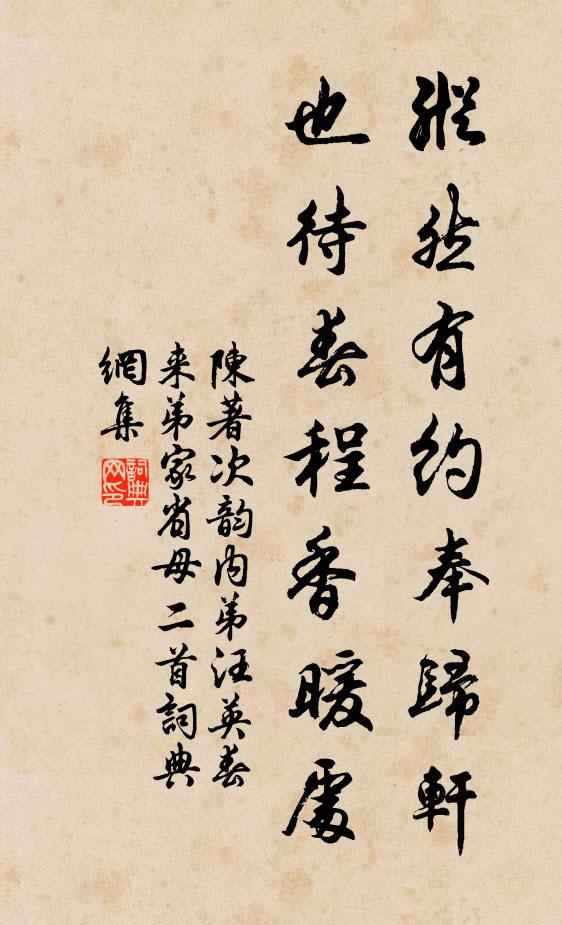 縱然有約奉歸軒
也待春程香暖處
陳著次韵內弟汪英春
来弟家省母二首詞典
網集
詞典
网印